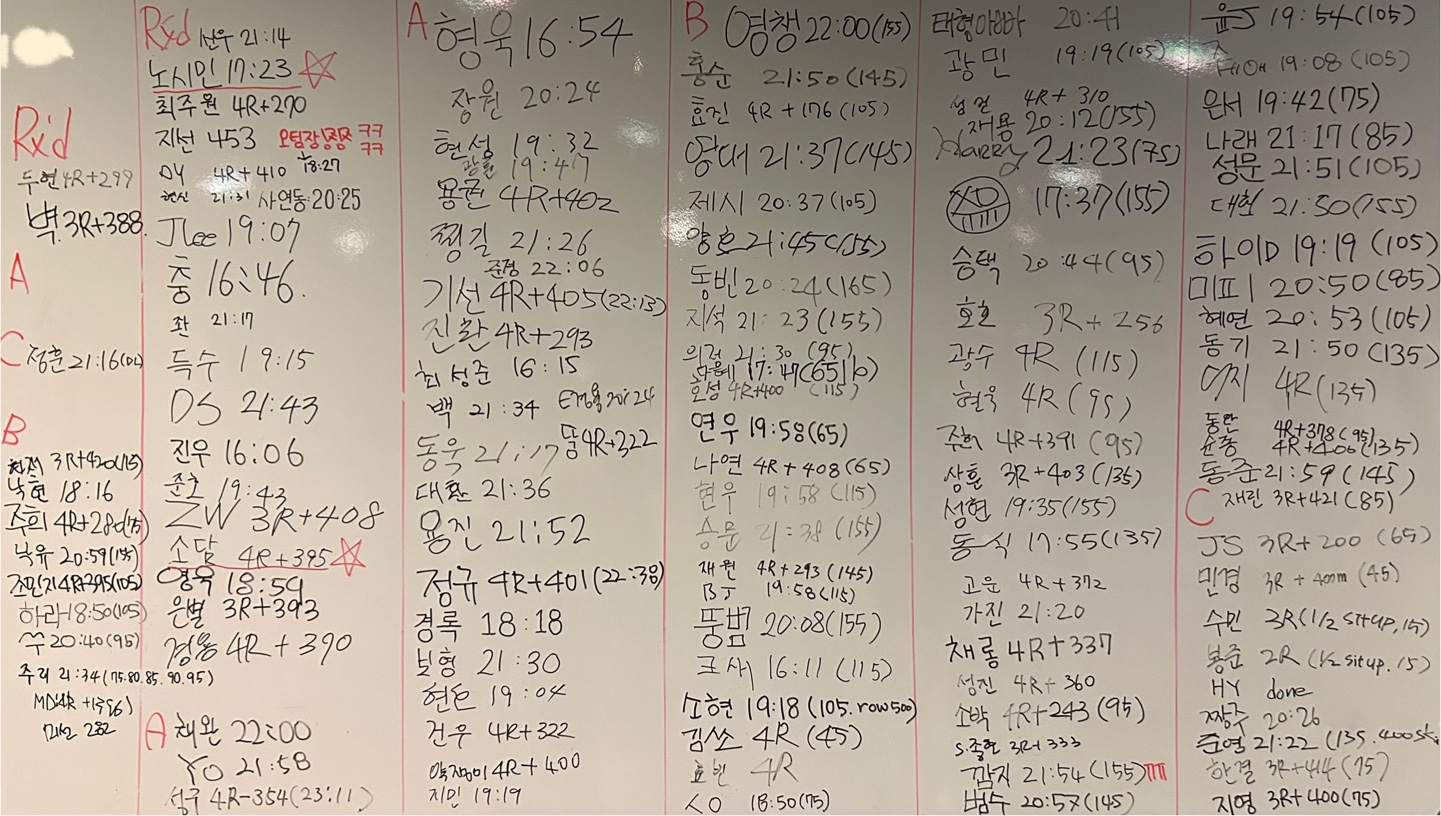 Rx'd
두현 4R+299
벽 3R+388
A
C 정훈 21:16
B
3R+420(115)
낙현 18:16
주희 4R+280
낙유 20:59(155)
조민지 4R+395(105)
하라 18:50(105)
쑤 20:40(95)
주리 21:34(75.80.85.90.95)
MD:4R
Rxd 산우 21:14
노시민 17:23
최주원 4R+270
지선 453 오팀장 ㅋㅋ ㅋㅋ
DY 4R+410 18:27
현신 21:31 사연동 20:25
JLee 19:07
충 16:46.
좌 21:17
득수 19:15
DS 21:43
진우 16:06
준호 19:43
ZW 3R+408
소담 4R+395
영욱 18:59
은별 3R+393
경용 4R+390
A 채완 22:00
YO 21:58
성구 4R-354(23:11)
A 형욱 16:54
장원 20:24
현성 19:32
19:47
용권 4R+402
찡길 21:26
준경 22:06
기선 4R+405(22:13)
진환 4R+293
최성준 16:15
백 21:34 20:24
동욱 21:17 뚬 4R+322
대환 21:36
용진 21:52
정규 4R+401(22:38)
경록 18:18
보형 21:30
현은 19:04
건우 4R+322
4R+400
지민 19:19
B 영챙 22:00(155)
홍순 21:50(145)
효진 4R+176(105)
영대 21:37(145)
제시 20:37(105)
양호 21:45(155)
동빈 20:24(165)
지석 21:23(155)
의정 21:30(95)
17:47(65lb)
호성 4R+400 (115)
연우 19:58(65)
나연 4R+408(65)
현우 19:58(115)
승윤 21:38(155)
재원 4R+293(145)
BJ 19:58(115)
뚱범 20:08(155)
크새 16:11(115)
소현 19:18(105.row500)
김쏘 4R(45)
효빈 4R
ㅅO 18:50(75)
태형아빠 20:41
광민 19:19(105)
성결 4R+310
재용 20:12(155)
Harry 21:23(75)
17:37(155)
승택 20:44(95)
호호 3R+256
광수 4R(115)
현욱 4R(95)
주희 4R+391(95)
상훈 3R+403(135)
성현 19:35(155)
동식 17:55(135)
고운 4R+372
가진 21:20
채롱 4R+337
성진 4R+360
소박 4R+243(95)
S.종현 3R+333
깜지 21:54(155)
범수 20:57(145)
윤J 19:54(105)
19:08(105)
은서 19:42(75)
나래 21:17(85)
성문 21:51(105)
대현 21:50(155)
하이D 19:19(105)
미피 20:50(85)
혜연 20:53(105)
동기 21:50(135)
4R(135)
동완 4R+378(95)
윤종 4R+406(135)
동준 21:59(145)
C 재린 3R+421(85)
JS 3R+200(65)
민경 3R+400m(45)
수민 3R(1/2 situp,15)
봉준 2R(1/2 situp.15)
HY done
짱구 20:26
준열 21:22(135.400
한결 3R+414(75)
지영 3R+400(75)